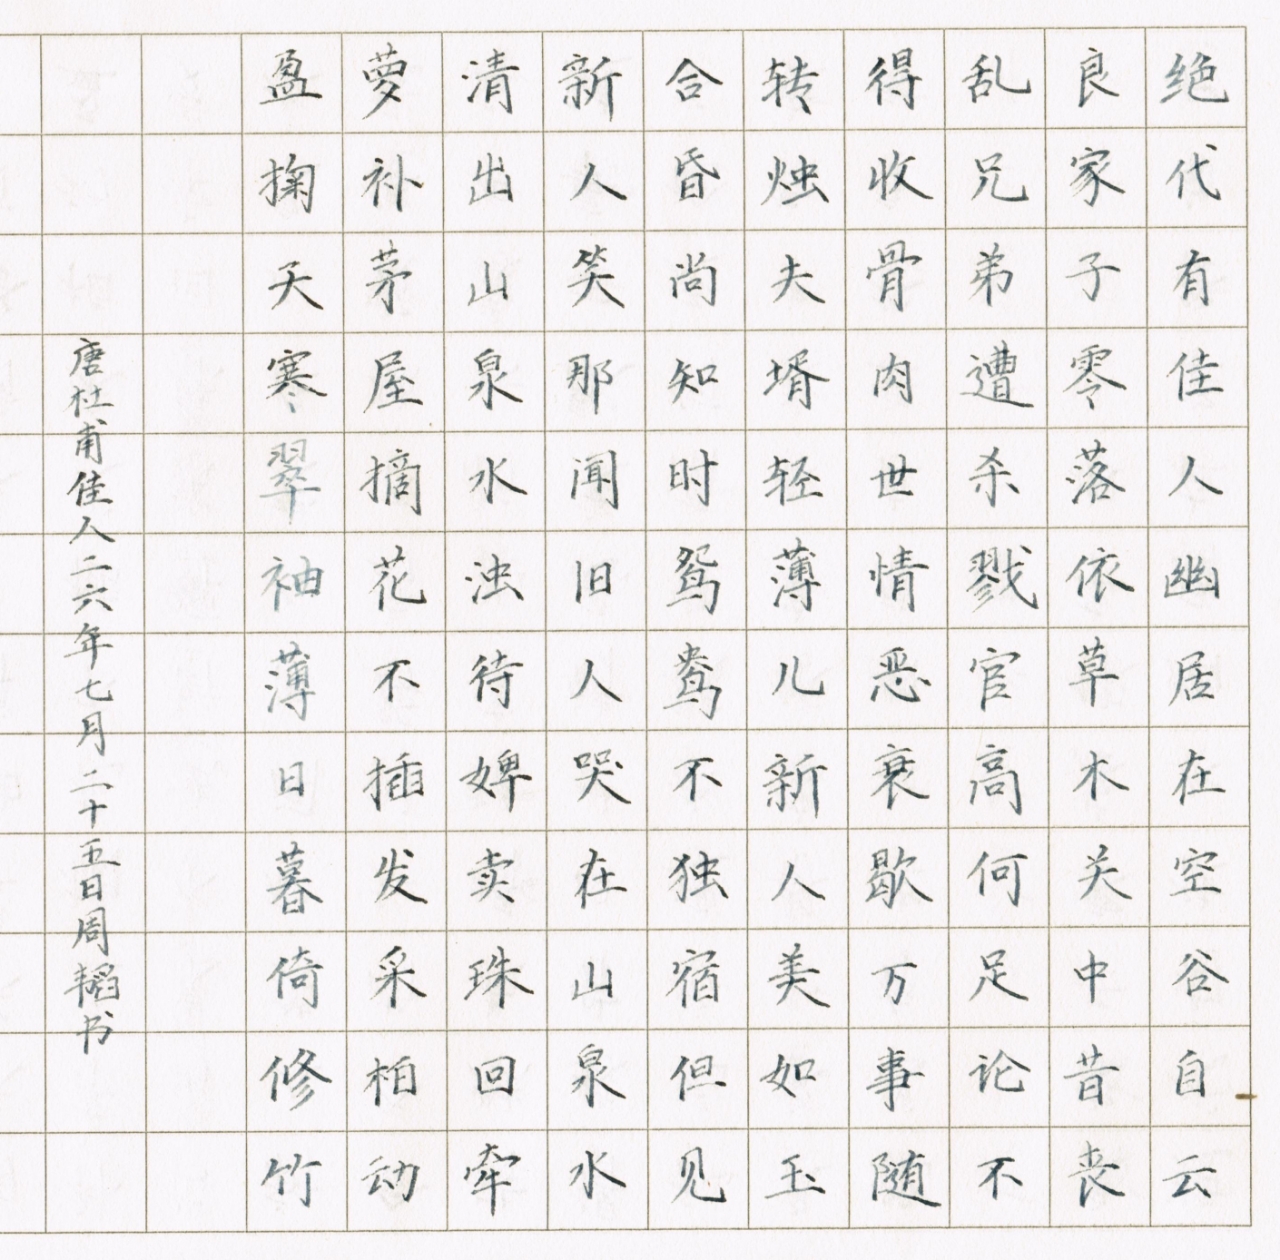 绝代有佳人幽居在空谷自云
良家子零落依草木关中昔丧
乱兄弟遭杀戮官高何足论不
得收骨肉世情恶衰歇万事随
转烛夫婿轻薄儿新人美如玉
合昏尚知时鸳鸯不独宿但见
新人笑那闻旧人哭在山泉水
清出山泉水浊待婢卖珠回牵
萝补茅屋摘花不插发采柏动
盈掬天寒翠袖薄日暮倚修竹
唐杜甫佳人二六年七月二十五日周韬书